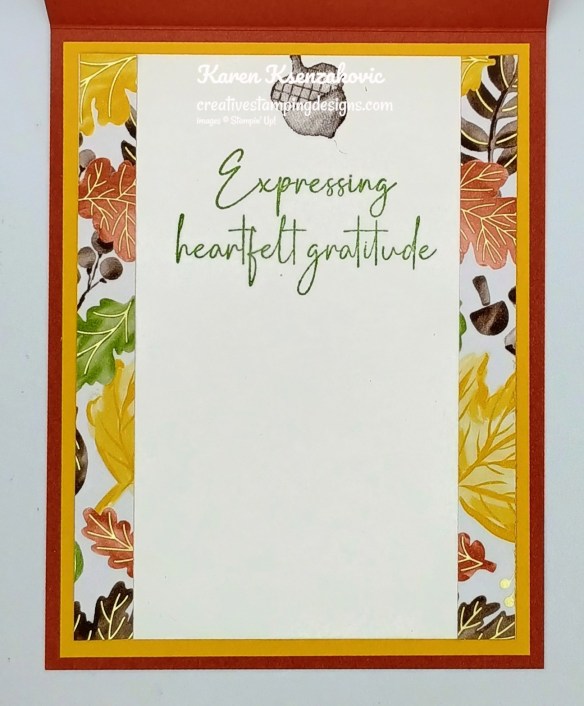 Karen Ksenzakovic
creativestampingdesigns.com
images © Stampin' Up!
Expressing
heartfelt gratitude